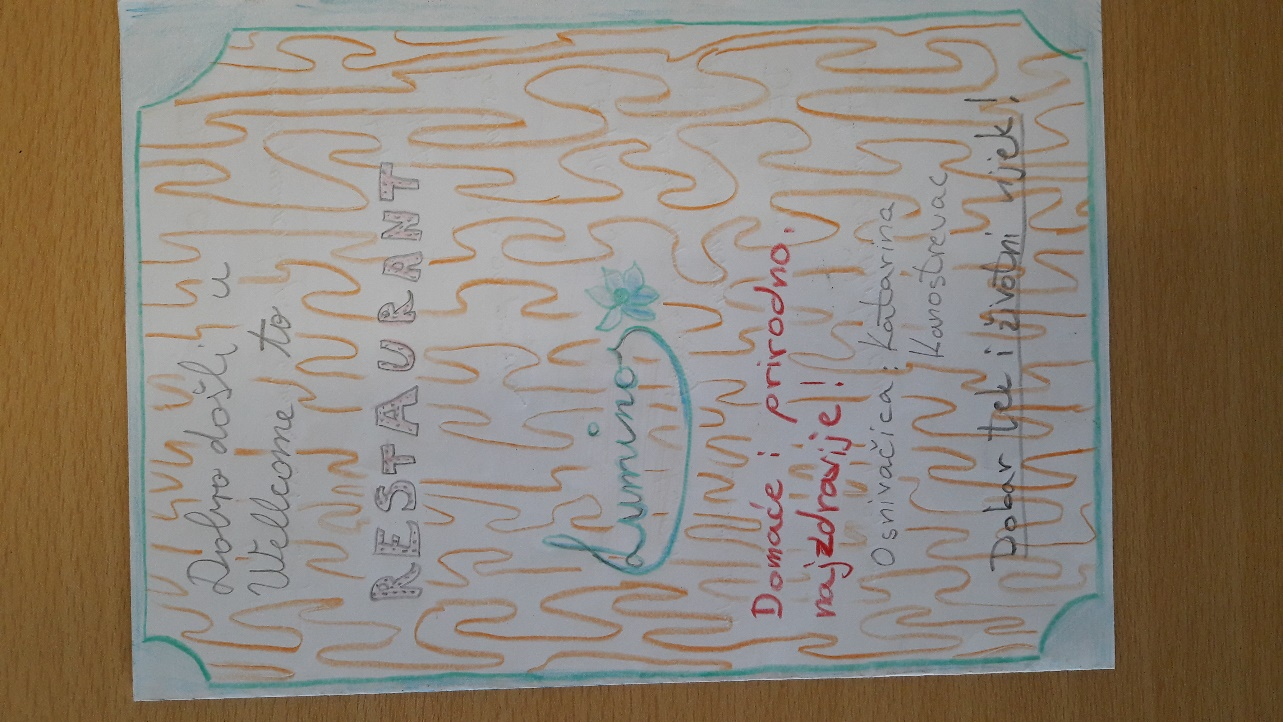 Dobro došli u
Wellcome to
RESTAURANT
Lumino
Domaće i prirodno,
najzdravije!
Osnivačica: Katarina
Kanostrevac
Dobar tek i životni vijek!